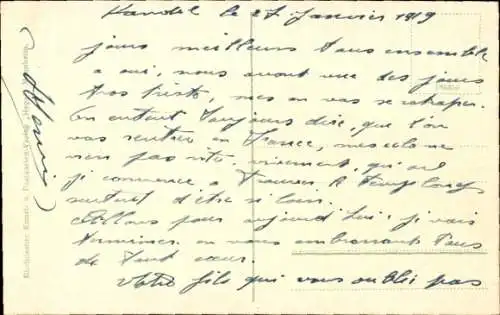 Kandel le 27 Janvier 1919
jours meilleurs tous ensemble
a oui, nous avont vue des jours
trop triste, mes on vas se ratraper.
On entant toujours dire que l'on
vas rentrer en France, mes cela ne
vien pas vite, vraiment, qu'
je commence a trouver le temps long
surtout d'être si loin.
Allons pour aujourd'hui je vais
terminer en vous embrassant tous
de tout cœur.
Votre fils qui vous oubli pas